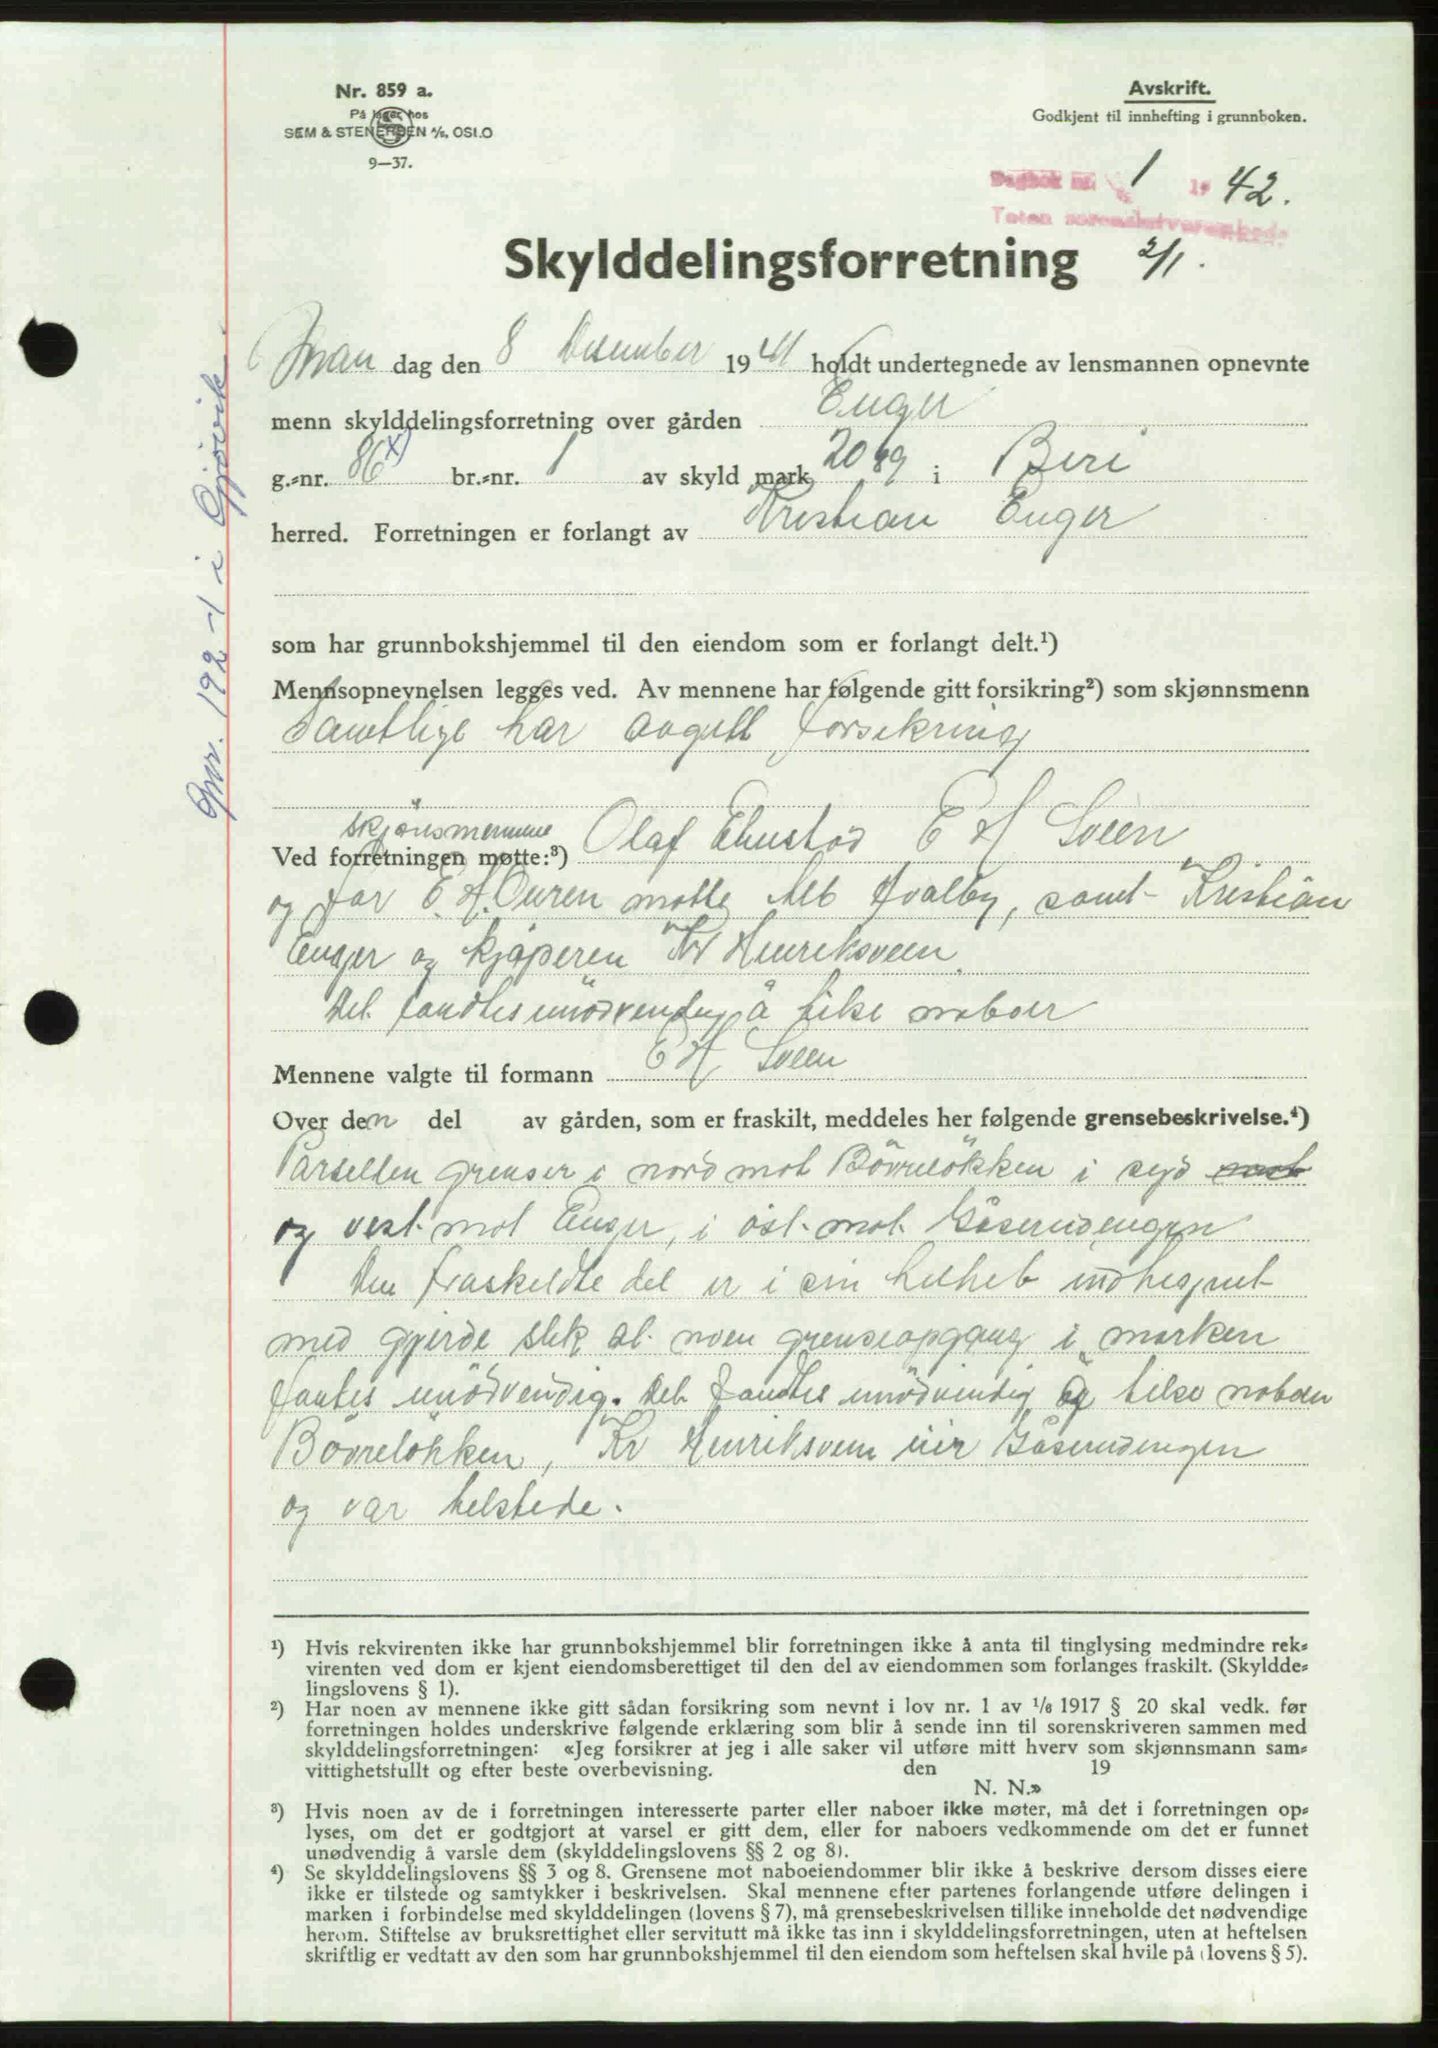 Nr. 859 a.
På lager hos
SEM & STENERSEN A/S, OSLO
9—37.
Avskrift.
Godkjent til innhefting i grunnboken.
Dagbok nr. 1 19 42.
Toten sorenskriverembede
2/1.
Skylddelingsforretning
Man dag den 8 Desember 19 41 holdt undertegnede av lensmannen opnevnte
menn skylddelingsforretning over gården Enger
g.=nr. 86 x) br.=nr. 1 av skyld mark 20 89 i Biri
herred. Forretningen er forlangt av Kristian Enger
som har grunnbokshjemmel til den eiendom som er forlangt delt.¹)
Mennsopnevnelsen legges ved. Av mennene har følgende gitt forsikring²) som skjønnsmenn
Samtlige har avgitt forsikring
skjønsmennene
Ved forretningen møtte:³) Olaf E H Sveen
og for E. A. Ouren møtte Alb Hvalby, samt Kristian
Enger og kjøperen Kr Henriksveen
Det fandtes unødvendig å tilse naboer
Mennene valgte til formann E H Sveen
Over den del av gården, som er fraskilt, meddeles her følgende grensebeskrivelse.⁴)
Parsellen grenser i nord mot Bövrelökken i syd
og vest mot Enger, i öst mot Gåserudengen
Den fraskeldte del er i sin helhet indhegnet
med gjerde slik at noen grenseopgang i marken
fantes unödvendig. Det fandtes unödvendig tilse naboen
Bövrelökken, Kr Henriksveen eier Gåserudengen
og var tilstede.
¹) Hvis rekvirenten ikke har grunnbokshjemmel blir forretningen ikke å anta til tinglysing medmindre rek=
virenten ved dom er kjent eiendomsberettiget til den del av eiendommen som forlanges fraskilt. (Skyldde=
lingslovens § 1).
²) Har noen av mennene ikke gitt sådan forsikring som nevnt i lov nr. 1 av 1/6 1917 § 20 skal vedk. før
forretningen holdes underskrive følgende erklæring som blir å sende inn til sorenskriveren sammen med
skylddelingsforretningen: «Jeg forsikrer at jeg i alle saker vil utføre mitt hverv som skjønnsmann sam=
vittighetsfullt og efter beste overbevisning. den 19
N. N.»
³) Hvis noen av de i forretningen interesserte parter eller naboer ikke møter, må det i forretningen op=
lyses, om det er godtgjort at varsel er gitt dem, eller for naboers vedkommende om det er funnet
unødvendig å varsle dem (skylddelingslovens §§ 2 og 8).
⁴) Se skylddelingslovens §§ 3 og 8. Grensene mot naboeiendommer blir ikke å beskrive dersom disses eiere
ikke er tilstede og samtykker i beskrivelsen. Skal mennene efter partenes forlangende utføre delingen i
marken i forbindelse med skylddelingen (lovens § 7), må grensebeskrivelsen tillike inneholde det nødvendige
herom. Stiftelse av bruksrettighet eller servitutt må ikke tas inn i skylddelingsforretningen, uten at heftelsen
skriftlig er vedtatt av den som har grunnbokshjemmel til den eiendom som heftelsen skal hvile på (lovens § 5).
Gnr. 192-1 i Gjøvik.